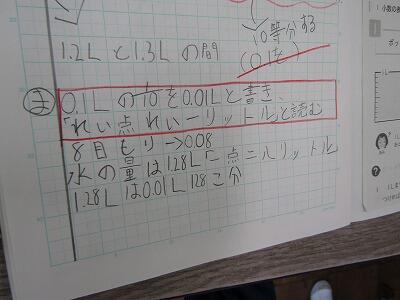 10等分する
(0.1を)
1.2Lと1.3Lの間
ま
0.1Lの1/10を0.01Lと書き、
「れい点れいーリットル」と読む
8目もり→0.08
水の量は1.28L「一点二八リットル
1.28Lは0.01L 128こ分
小数の
ポッ
1L